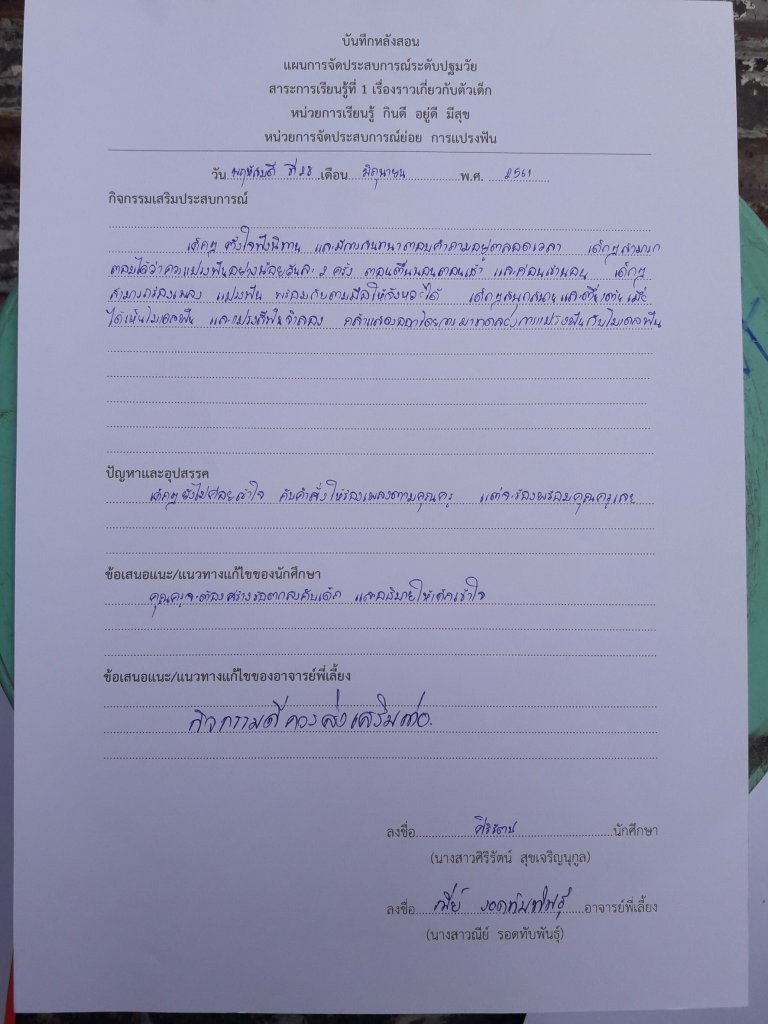 บันทึกหลังสอน
แผนการจัดประสบการณ์ระดับปฐมวัย
สาระการเรียนรู้ที่ 1 เรื่องราวเกี่ยวกับตัวเด็ก
หน่วยการเรียนรู้ กินดี อยู่ดี มีสุข
หน่วยการจัดประสบการณ์ย่อย การแปรงฟัน
วัน พฤหัสบดี ที่ 28 เดือน มิถุนายน พ.ศ. 2561
กิจกรรมเสริมประสบการณ์
เด็กๆ ตั้งใจฟังนิทาน และมีการสนทนาตอบคำถามอยู่ตลอดเวลา เด็กๆสามารถ
ตอบได้ว่าควรแปรงฟันอย่างน้อยวันละ 2 ครั้ง ตอนตื่นนอนตอนเช้า และก่อนเข้านอน เด็กๆ
สามารถร้องเพลง แปรงฟัน พร้อมกับตบมือให้จังหวะได้ เด็กๆสนุกสนาน และตื่นเต้น เมื่อ
ได้เห็นโมเดลฟัน และแปรงสีฟันจำลอง กล้าแสดงออกโดยการมาทดลองการแปรงฟันกับโมเดลฟัน
ปัญหาและอุปสรรค
เด็กๆ ยังไม่ค่อยเข้าใจ กับคำสั่ง ให้ร้องเพลงตามคุณครู แต่จะร้องพร้อมคุณครูเลย
ข้อเสนอแนะ/แนวทางแก้ไขของนักศึกษา
คุณครูจะต้องสร้างข้อตกลงกับเด็ก และอธิบายให้เด็กเข้าใจ
ข้อเสนอแนะ/แนวทางแก้ไขของอาจารย์พี่เลี้ยง
กิจกรรมดี ควรส่งเสริมต่อ.
ลงชื่อ ศิริรัตน์ นักศึกษา
(นางสาวศิริรัตน์ สุขเจริญนุกูล)
ลงชื่อ ณีย์ รอดทับพันธุ์ อาจารย์พี่เลี้ยง
(นางสาวณีย์ รอดทับพันธุ์)